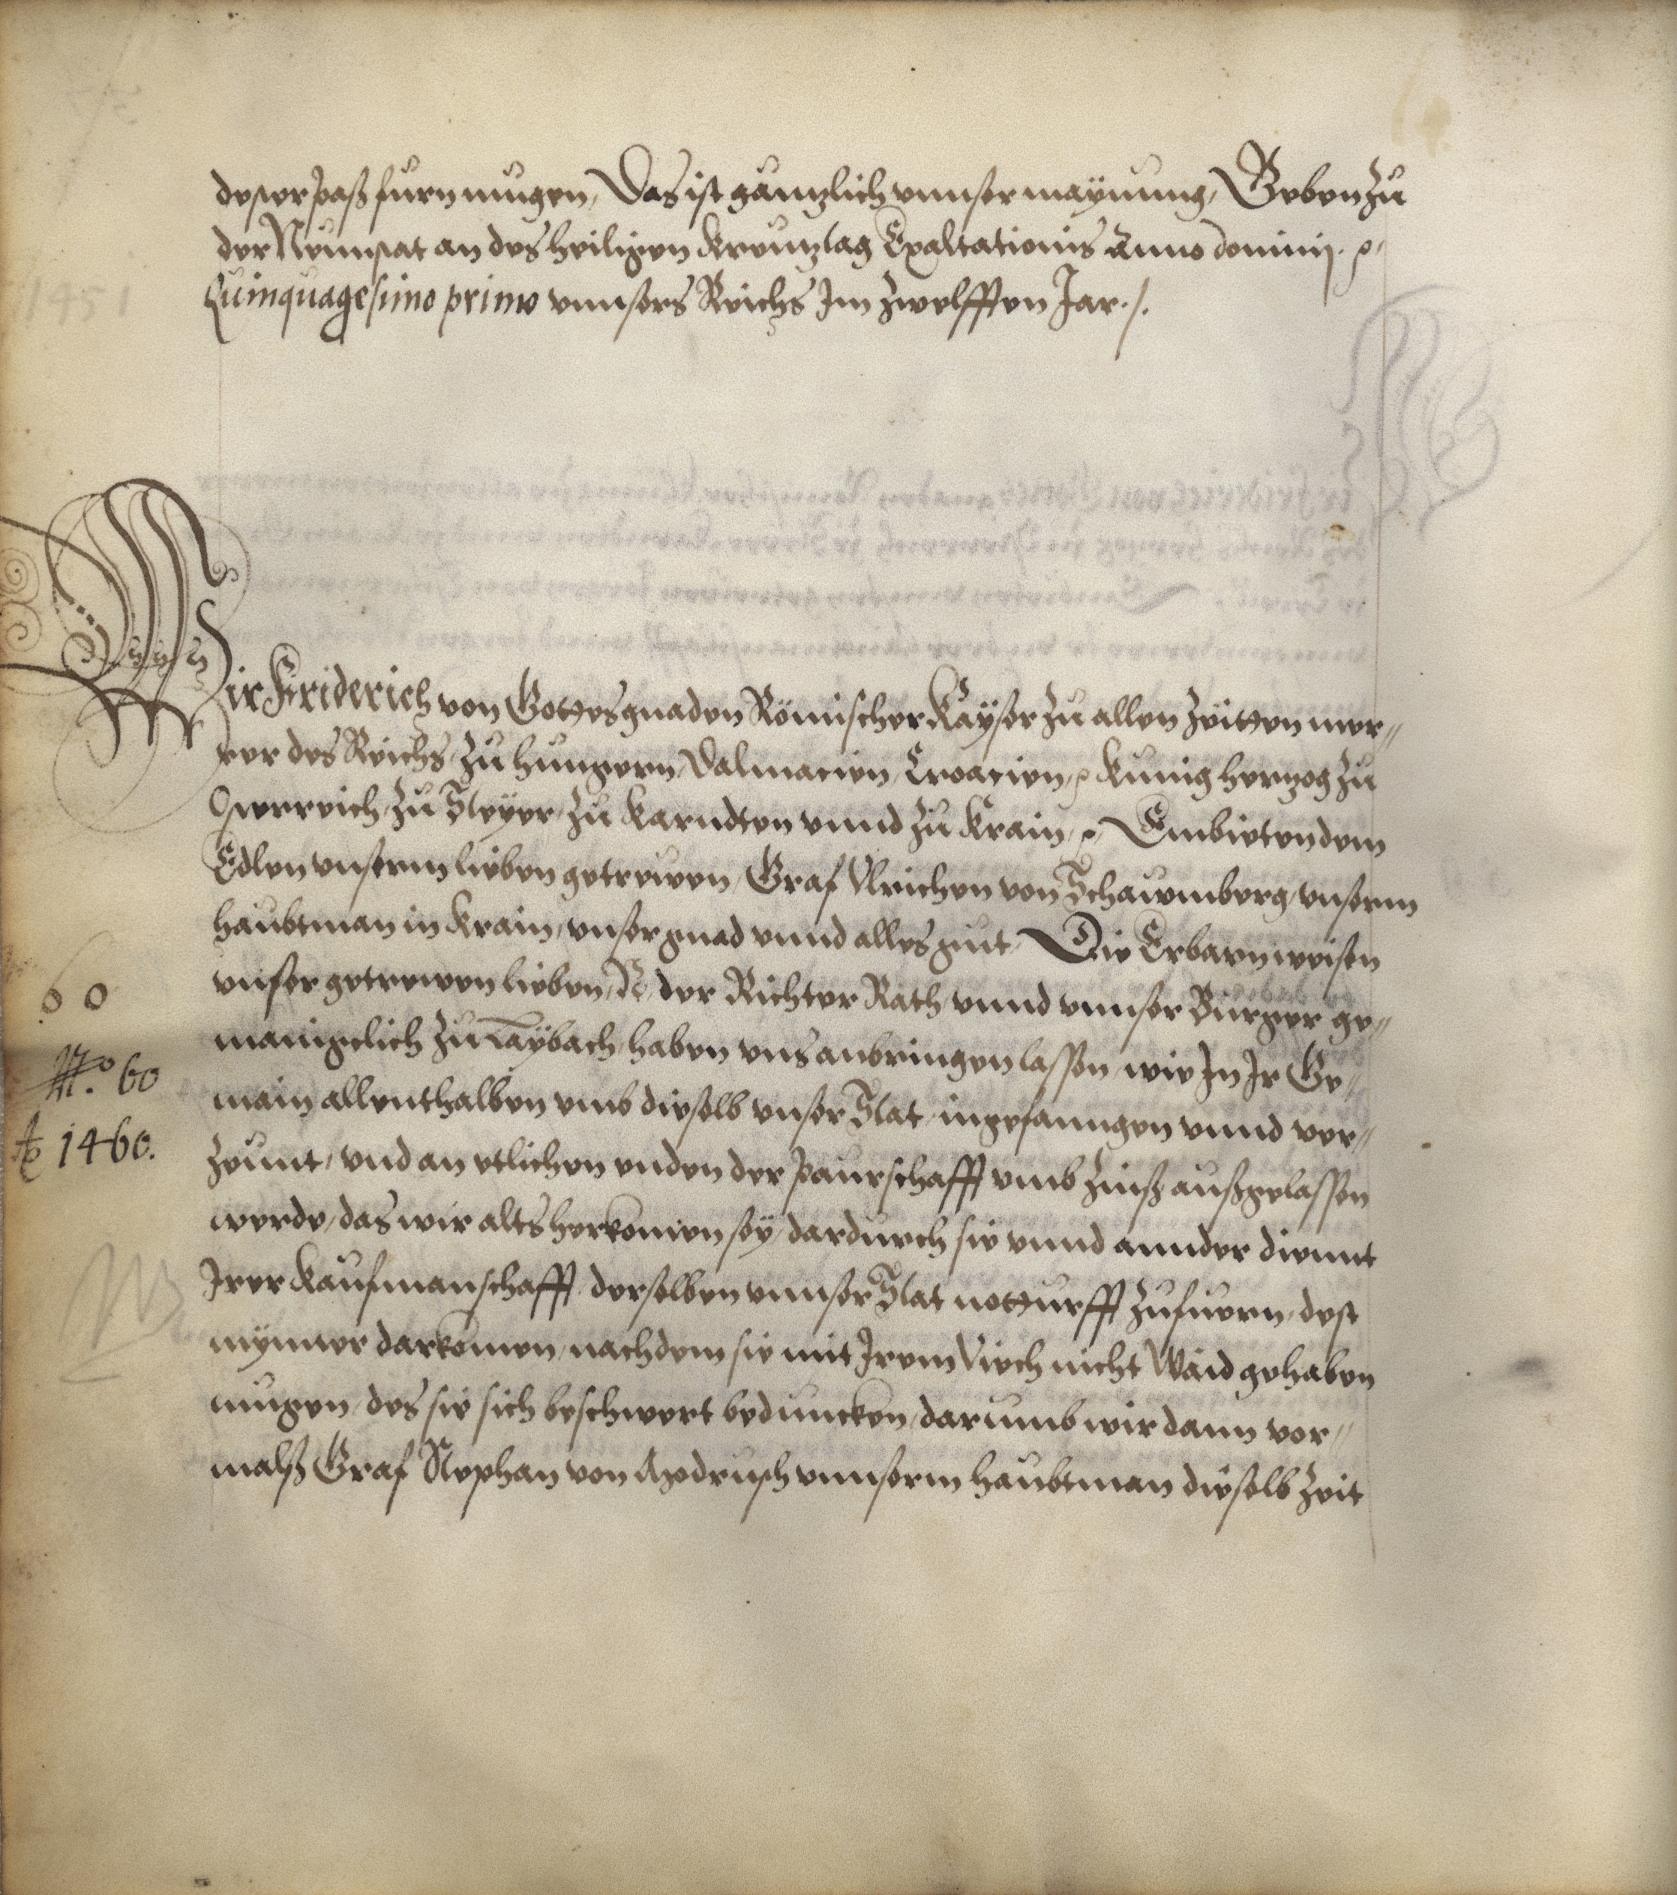 dester paß furn mugen, Das ist gäntzlich vnnser maynung, Geben zu
der Neunstat an des heiligen Kreutztag Exaltationis Anno dominj. ꝛc.
Quinquagesimo primo vnnsers Reichs Im zwelfften Jar ./.
Wir Friderich von Gottes gnaden Römischer Kayser zu allen Zeitten mer„
rer des Reichs, zu Hungern, Dalmacien, Croacien, ꝛc Kunig hertzog zu
Osterreich, zu Steyer, zu Karndten vnnd zu Krain, ꝛc, Embieten dem
Edlen vnserm lieben getrewen, Graf Vlrichen von Schaumberg, vnserm
haubtman in Krain, vnser gnad vnnd alles gut, Die Erbarn weisen
vnser getrewen lieben, N, der Richter Rath vnnd vnnser Burger ge„
manigclich zu Laybach, haben vns anbringen lassen, wie In Ir Ge„
main allenthalben vmb dieselb vnser Stat, ingefanngen vnnd ver„
zeunt, vnd an etlichen enden der paurschafft vmb Zinß außgelassen
werde, das wir alts herkomen sey, dardurch sie vnnd annder diennt
Irer Kaufmanschafft, derselben vnnser Stat notturfft zufuern, dest
mynner darkomen, nachdem sie mit Irem Viech nicht Waid gehaben
mugen, des sie sich beschwert beduncken, darumb wir dann vor„
malß Graf Stephan von Modrusch vnnserm haubtman dieselb Zeit
60
N.º 60
Aº 1460.
1451
NB